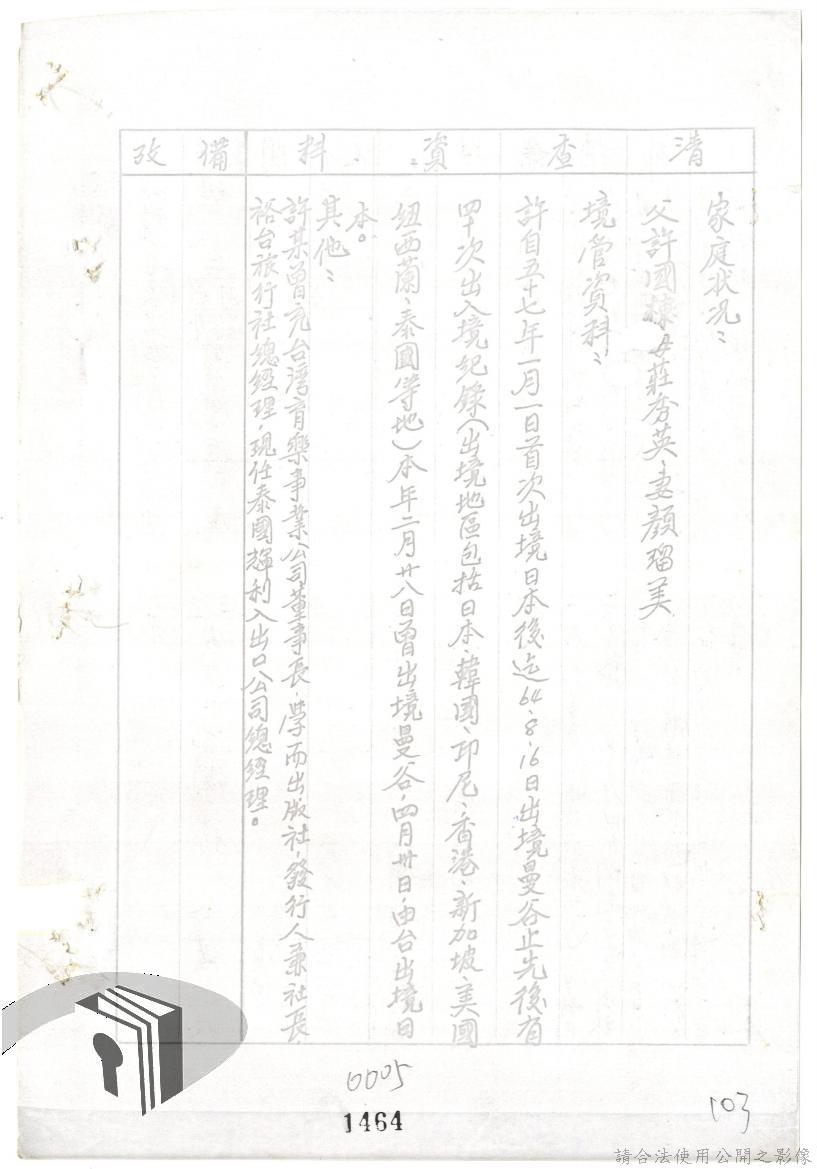 清查資料
備攷
家庭狀况：
父許國棟、母莊秀英、妻顏瑠美
境管資料：
許自五十七年一月一日首次出境日本後迄64、8、16日出境曼谷止先後有
四十次出入境紀錄（出境地區包括日本、韓國、印尼、香港、新加坡、美國
紐西蘭、泰國等地）本年二月廿八日曾出境曼谷，四月卅日由台出境日
本。
其他：
許某曾充台灣育樂事業公司董事長，學而出版社，發行人兼社長，
裕台旅行社總經理，現任泰國輝利入出口公司總經理。
0005
1464
103
請合法使用公開之影像